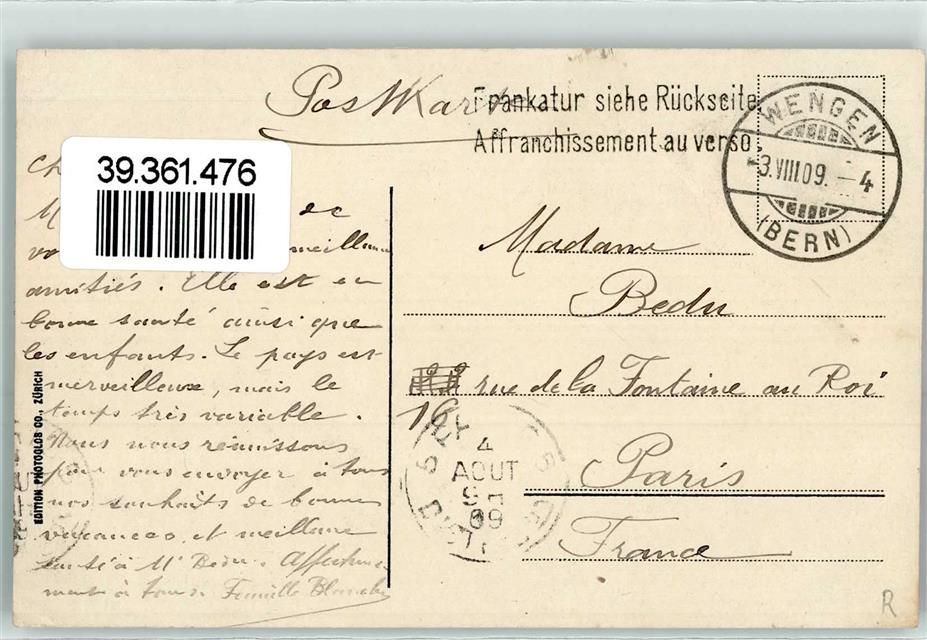 PostKarte
Frankatur siehe Rückseite.
Affranchissement au verso.
WENGEN
3.VIII.09. - 4
(BERN)
39.361.476
Ch
M de
vo meilleures
amitiés. Elle est en
bonne santé ainsi que
les enfants. Le pays est
merveilleux, mais le
temps très variable.
Nous nous réunissons
pour vous envoyer à tous
nos souhaits de bonnes
vacances et meilleure
santé à Mr Bedu. Affectueuse
ment à tous. Famille
EDITION PHOTOGLOB CO., ZÜRICH
Madame
Bedu
rue de la Fontaine au Roi
16
Paris
France
4
AOUT
09
R